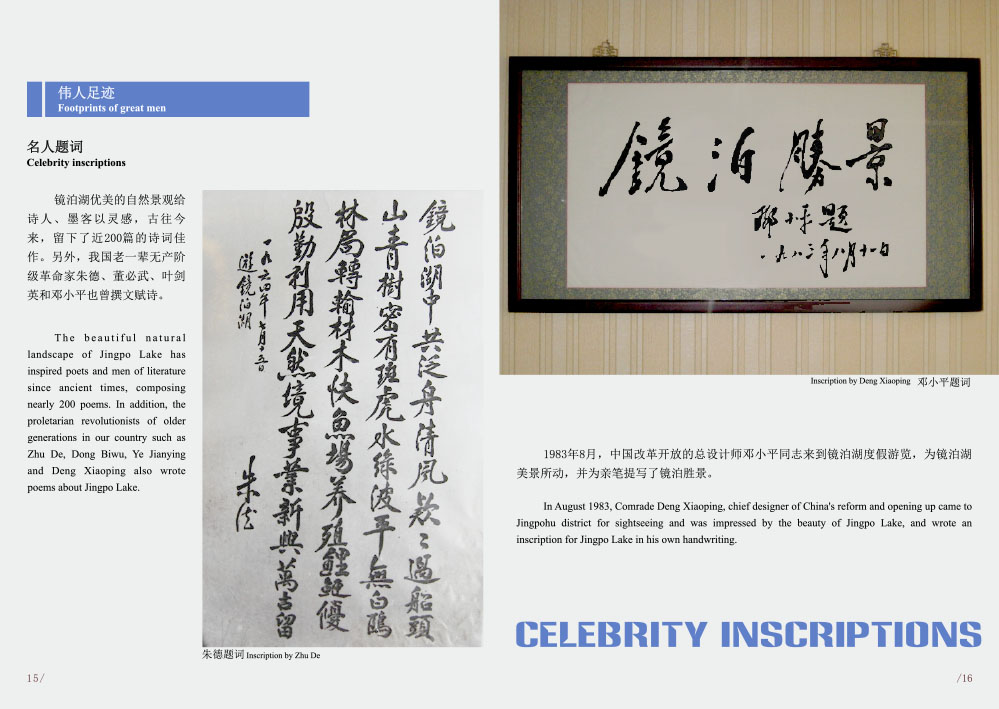 伟人足迹
Footprints of great men
名人题词
Celebrity inscriptions
镜泊湖优美的自然景观给
诗人、墨客以灵感，古往今
来，留下了近200篇的诗词佳
作。另外，我国老一辈无产阶
级革命家朱德、董必武、叶剑
英和邓小平也曾撰文赋诗。
The beautiful natural
landscape of Jingpo Lake has
inspired poets and men of literature
since ancient times, composing
nearly 200 poems. In addition, the
proletarian revolutionists of older
generations in our country such as
Zhu De, Dong Biwu, Ye Jianying
and Deng Xiaoping also wrote
poems about Jingpo Lake.
鏡泊湖中共泛舟清風欸〻過船頭
山青樹密有斑虎水綠波平無白鷗
林局轉輸材木快魚場养殖鲤鲢優
殷勤利用天然境事業新興萬古留
一九六四年七月十五日
遊鏡泊湖
朱德
朱德题词 Inscription by Zhu De
15/
镜泊勝景
邓小平题
一九八三年八月十一日
Inscription by Deng Xiaoping 邓小平题词
1983年8月，中国改革开放的总设计师邓小平同志来到镜泊湖度假游览，为镜泊湖
美景所动，并为亲笔提写了镜泊胜景。
In August 1983, Comrade Deng Xiaoping, chief designer of China's reform and opening up came to
Jingpohu district for sightseeing and was impressed by the beauty of Jingpo Lake, and wrote an
inscription for Jingpo Lake in his own handwriting.
CELEBRITY INSCRIPTIONS
/16